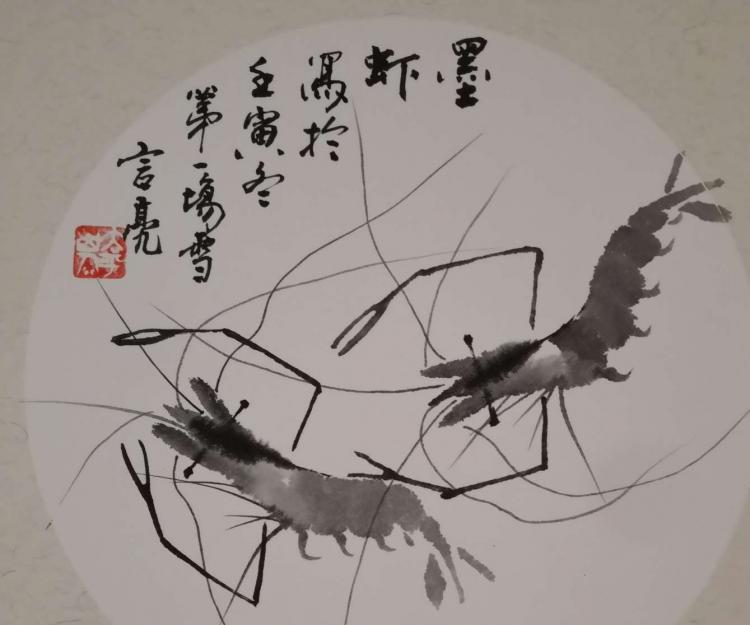 墨
虾
写於
壬寅冬
第一場雪
言亮